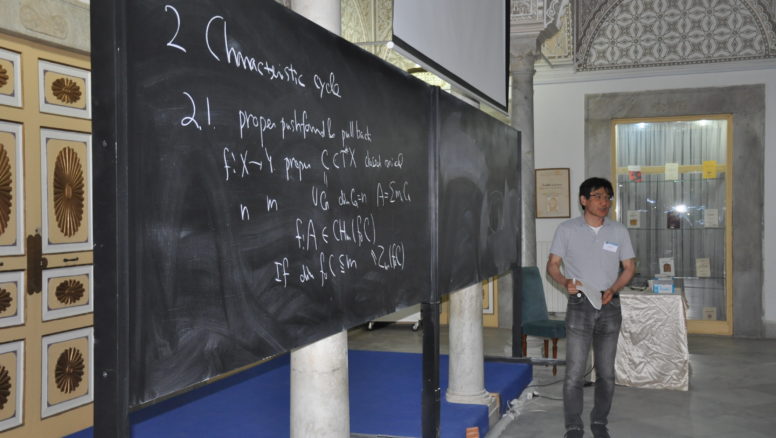 2 Characteristic cycle
2.1. proper pushforward & pull back
f: X → Y proper C ⊂ T*X closed conical
n m ∪Ca dim Ca=n A=Σma Ca
f!A ∈ CHm(f∘C)
If dim f∘C ≤ m Zm(f∘C)